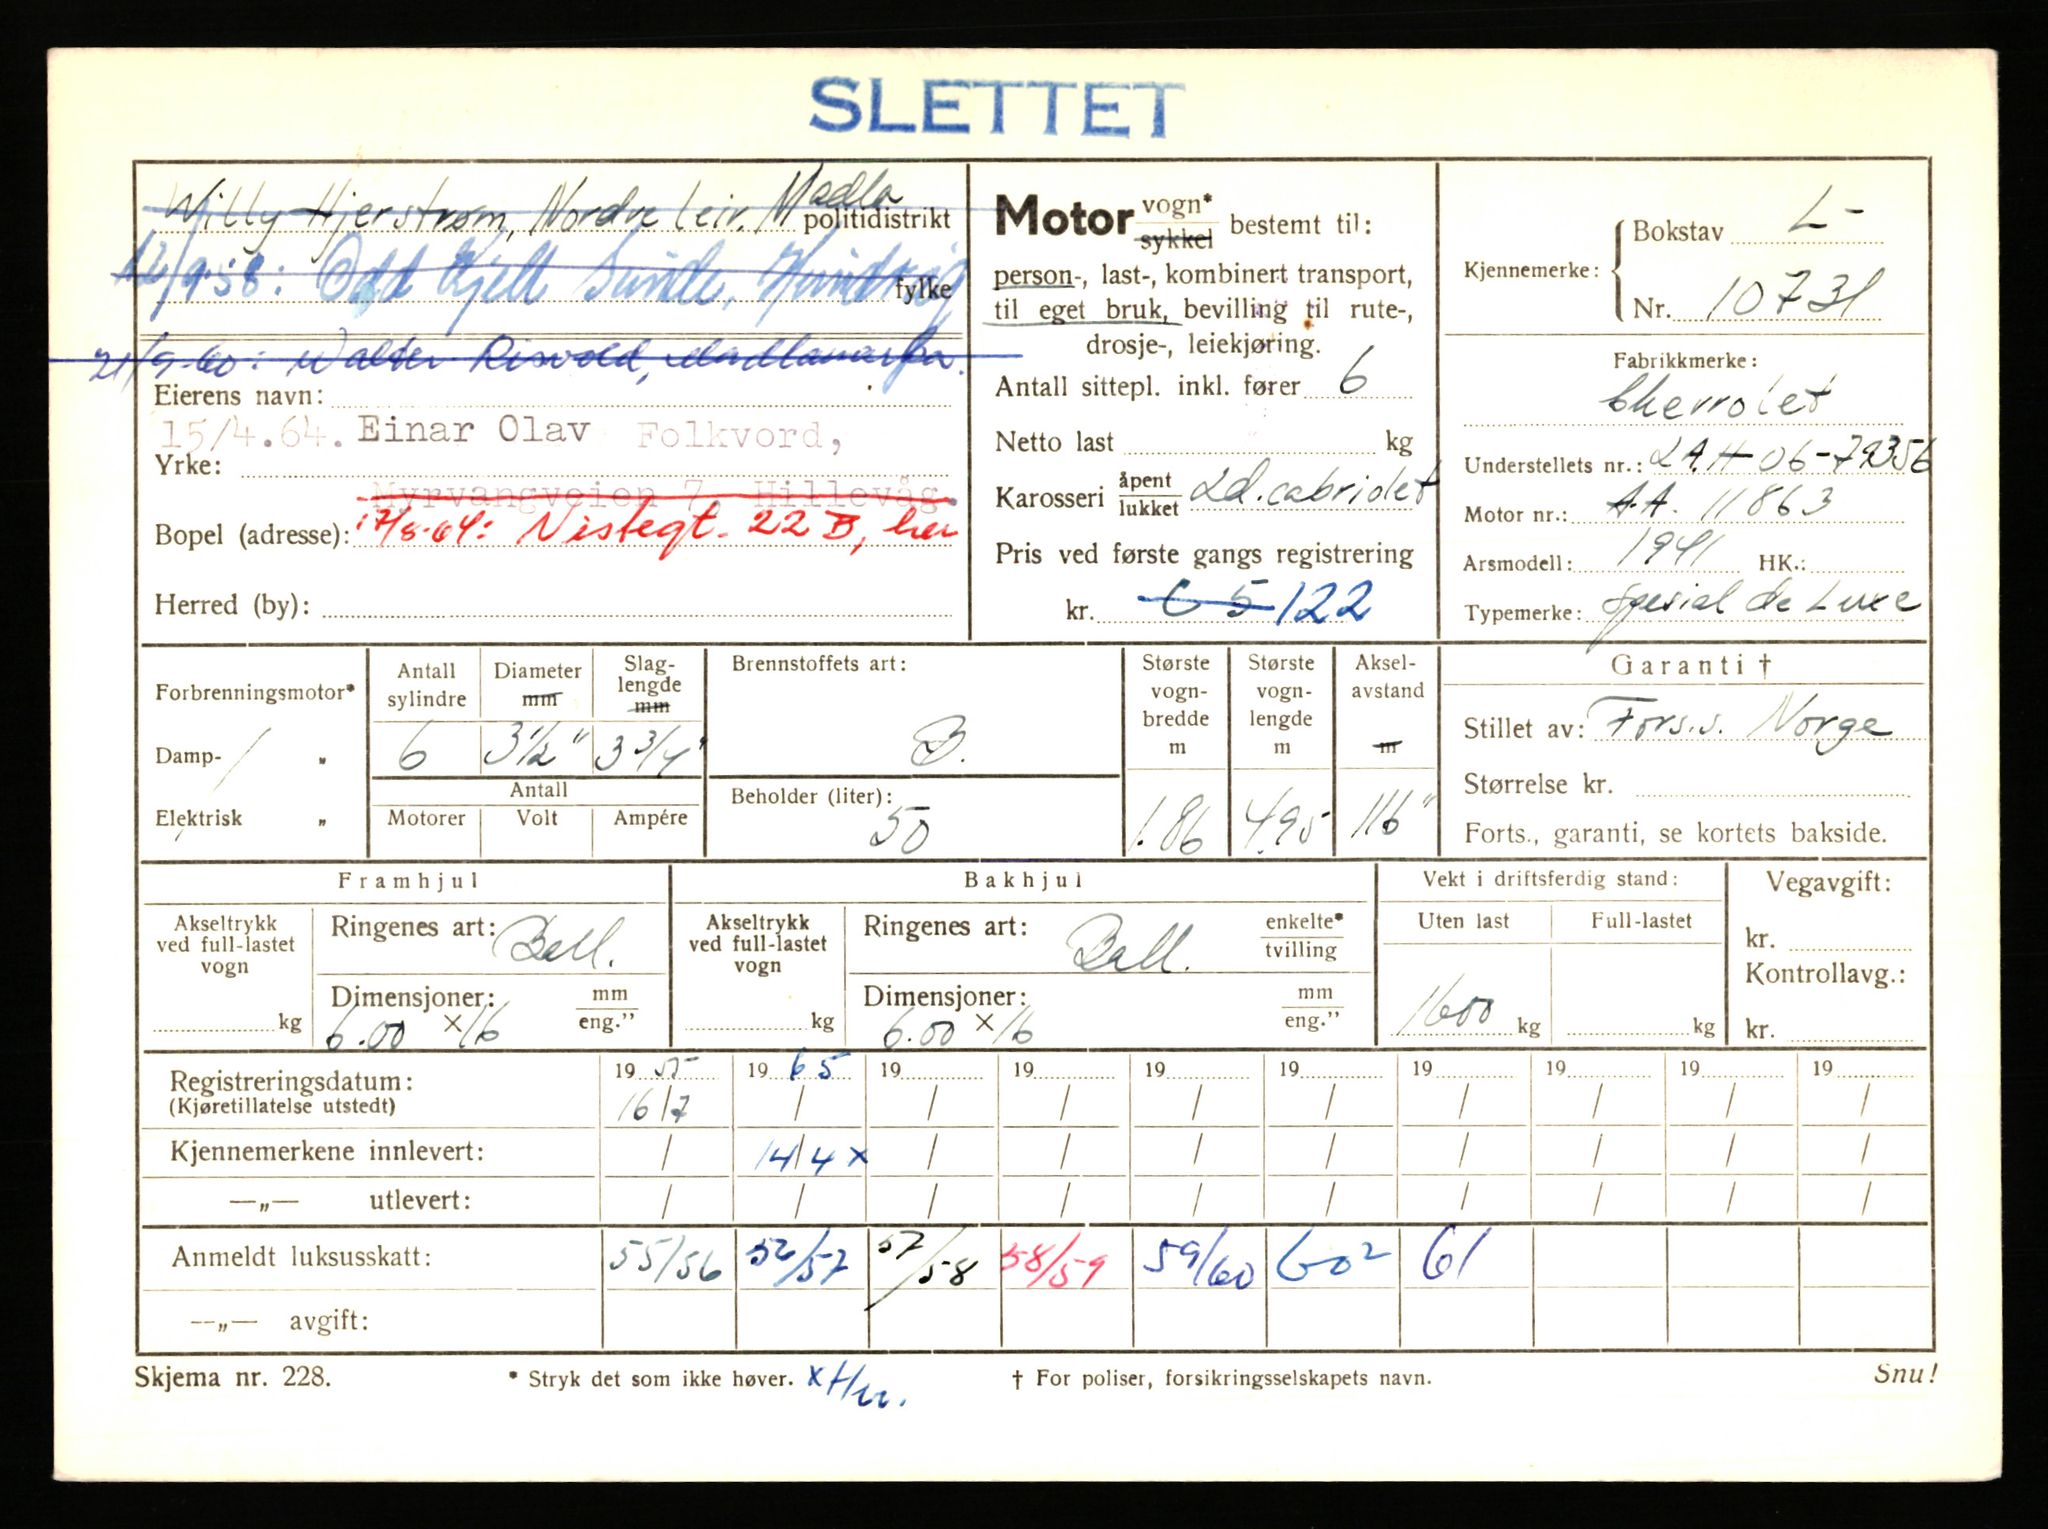 SLETTET
Willy Hjerstrøm, Nordre leir, Madla
politidistrikt
12/9-58: Odd Kjell Sunde,
fylke
21/9-60: Walter Risvold,
Eierens navn:
15/4.64. Einar Olav Folkvord,
Yrke:
Myrvangveien 7, Hillevåg.
Bopel (adresse): 17/8-64: Nistegt. 22 B, her
Herred (by):
Motor vogn* sykkel bestemt til:
person-, last-, kombinert transport,
til eget bruk, bevilling til rute-,
drosje-, leiekjøring.
Antall sittepl. inkl. fører 6
Netto last kg
Karosseri åpent lukket 2d. cabriolet
Pris ved første gangs registrering
kr. 65 122
Kjennemerke: Bokstav L-
Nr. 10731
Fabrikkmerke:
Chevrolet
Understellets nr.: 2AH-06-79356
Motor nr.: AA. 11863
Arsmodell: 1941 HK.:
Typemerke: Spesial de Luxe
Forbrenningsmotor*
Damp- „
Elektrisk „
Antall sylindre 6
Diameter mm 3 1/2"
Slaglengde mm 3 3/4"
Antall
Motorer Volt Ampére
Brennstoffets art:
B.
Beholder (liter):
50
Største vogn-bredde m 1.86
Største vogn-lengde m 4.95
Aksel-avstand m 116"
Garanti †
Stillet av: Fors.s. Norge
Størrelse kr.
Forts., garanti, se kortets bakside.
Framhjul
Akseltrykk ved full-lastet vogn kg
Ringenes art: Ball.
Dimensjoner: mm eng."
6.00 × 16
Bakhjul
Akseltrykk ved full-lastet vogn kg
Ringenes art: Ball. enkelte* tvilling
Dimensjoner: mm eng."
6.00 × 16
Vekt i driftsferdig stand:
Uten last Full-lastet
1600 kg kg
Vegavgift:
kr.
Kontrollavg.:
kr.
Registreringsdatum: 19 55 19 65 19 19 19 19 19 19 19 19
(Kjøretillatelse utstedt) 16/7 / / / / / / / / /
Kjennemerkene innlevert: / 14/4 x / / / / / / / /
—„— utlevert: / / / / / / / / / /
Anmeldt luksusskatt: 55/56 56/57 57/58 58/59 59/60 60² 61
—„— avgift:
Skjema nr. 228.
* Stryk det som ikke høver. x
† For poliser, forsikringsselskapets navn.
Snu!